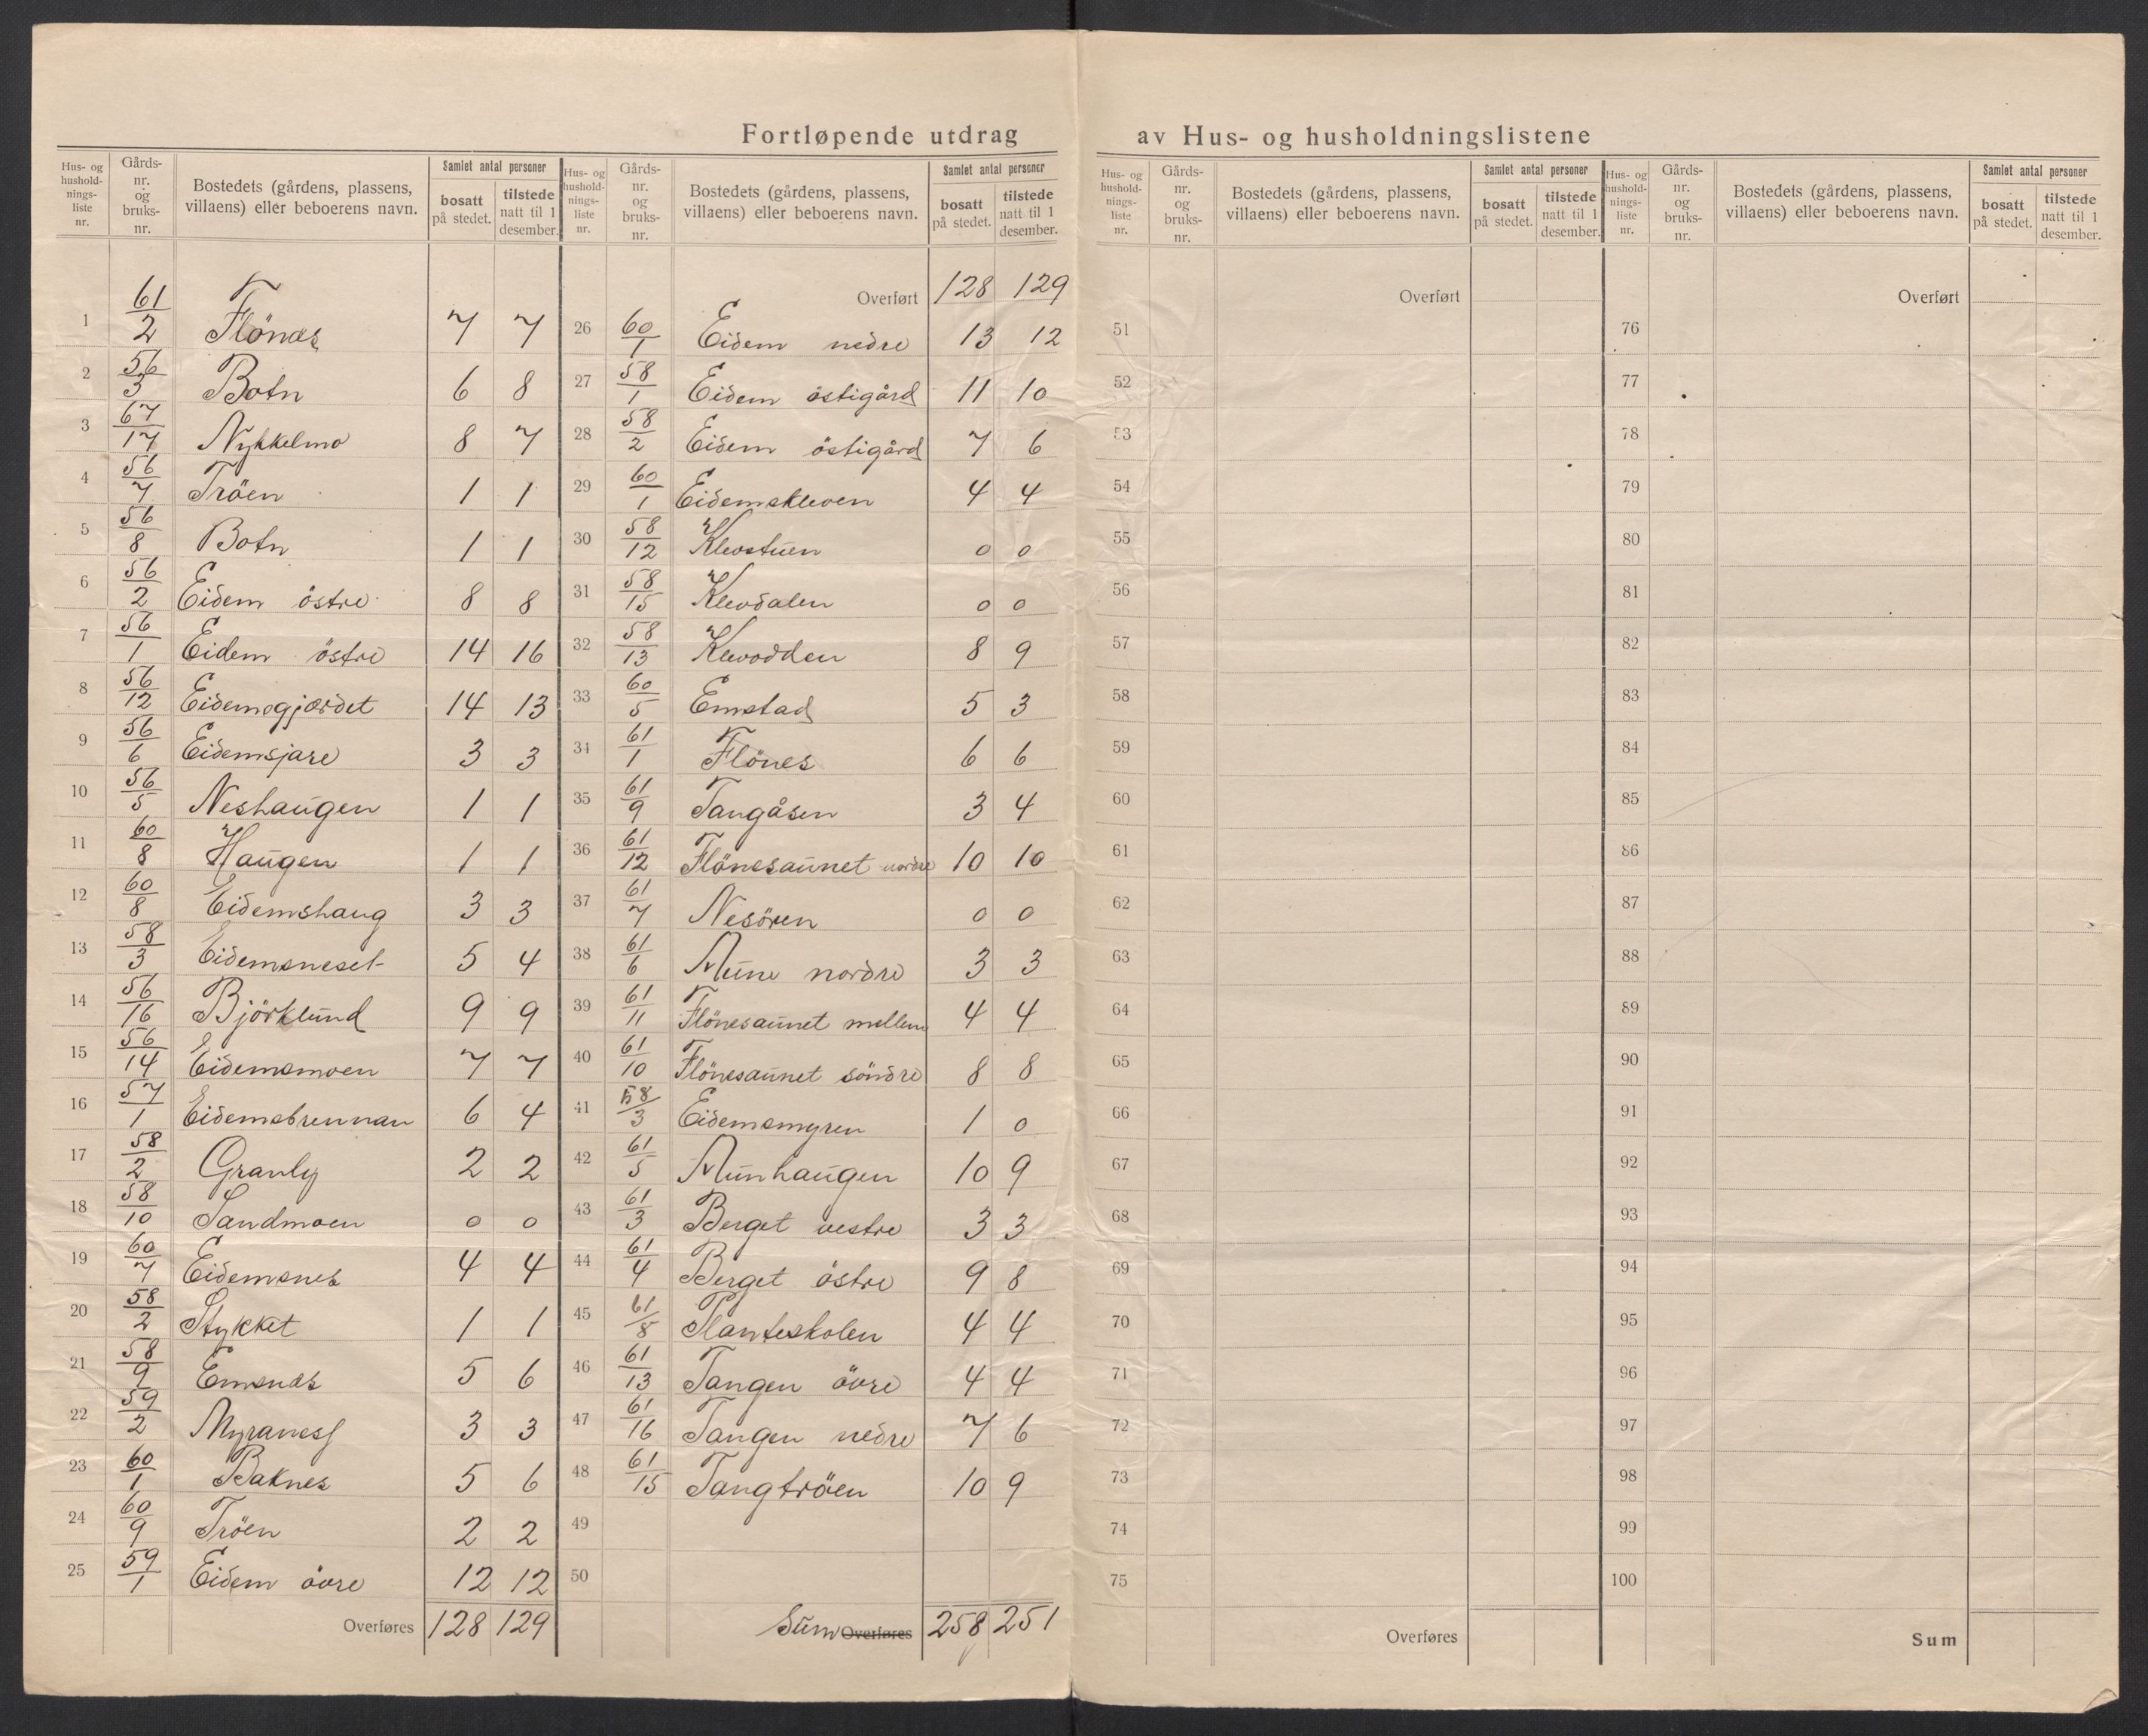 Fortløpende utdrag av Hus- og husholdningslistene
Hus- og husholdnings-liste nr. | Gårds-nr. og bruks-nr. | Bostedets (gårdens, plassens, villaens) eller beboerens navn. | Samlet antal personer | bosatt på stedet. | tilstede natt til 1 desember.
1 61/2 Flönes 7 7
2 56/3 Botn 6 8
3 67/17 Nykkelmo 8 7
4 56/7 Tröen 1 1
5 56/8 Botn 1 1
6 56/2 Eidem östre 8 8
7 56/1 Eidem östre 14 16
8 56/12 Eidemsgjærdet 14 13
9 56/6 Eidemsjare 3 3
10 56/5 Neshaugen 1 1
11 60/8 Haugen 1 1
12 60/8 Eidemshaug 3 3
13 58/3 Eidemsneset 5 4
14 56/16 Björklund 9 9
15 56/14 Eidemsmoen 7 7
16 57/1 Eidemsbrennan 6 4
17 58/2 Granly 2 2
18 58/10 Sandmoen 0 0
19 60/7 Eidemsnes 4 4
20 58/2 Stykket 1 1
21 58/9 Emsnes 5 6
22 59/2 Myranes 3 3
23 60/1 Baknes 5 6
24 60/9 Tröen 2 2
25 59/1 Eidem övre 12 12
Overføres 128 129
Hus- og husholdnings-liste nr. | Gårds-nr. og bruks-nr. | Bostedets (gårdens, plassens, villaens) eller beboerens navn. | Samlet antal personer | bosatt på stedet. | tilstede natt til 1 desember.
Overført 128 129
26 60/1 Eidem nedre 13 12
27 58/1 Eidem östigård 11 10
28 58/2 Eidem östigård 7 6
29 60/1 Eidemskleven 4 4
30 58/12 Klevstuen 0 0
31 58/15 Klevdalen 0 0
32 58/13 Klevodden 8 9
33 60/5 Emstad 5 3
34 61/1 Flönes 6 6
35 61/9 Tangåsen 3 4
36 61/12 Flönesaunet nordre 10 10
37 61/7 Nesören 0 0
38 61/6 Mune nordre 3 3
39 61/11 Flönesaunet mellem 4 4
40 61/10 Flönesaunet söndre 8 8
41 58/3 Eidemsmyren 1 0
42 61/5 Munhaugen 10 9
43 61/3 Berget vestre 3 3
44 61/4 Berget östre 9 8
45 61/8 Planteskolen 4 4
46 61/13 Tangen övre 4 4
47 61/16 Tangen nedre 7 6
48 61/15 Tangtröen 10 9
49
50
Sum Overføres 258 251
Hus- og husholdnings-liste nr. | Gårds-nr. og bruks-nr. | Bostedets (gårdens, plassens, villaens) eller beboerens navn. | Samlet antal personer | bosatt på stedet. | tilstede natt til 1 desember.
Overført
51
52
53
54
55
56
57
58
59
60
61
62
63
64
65
66
67
68
69
70
71
72
73
74
75
Overføres
Hus- og husholdnings-liste nr. | Gårds-nr. og bruks-nr. | Bostedets (gårdens, plassens, villaens) eller beboerens navn. | Samlet antal personer | bosatt på stedet. | tilstede natt til 1 desember.
Overført
76
77
78
79
80
81
82
83
84
85
86
87
88
89
90
91
92
93
94
95
96
97
98
99
100
Sum